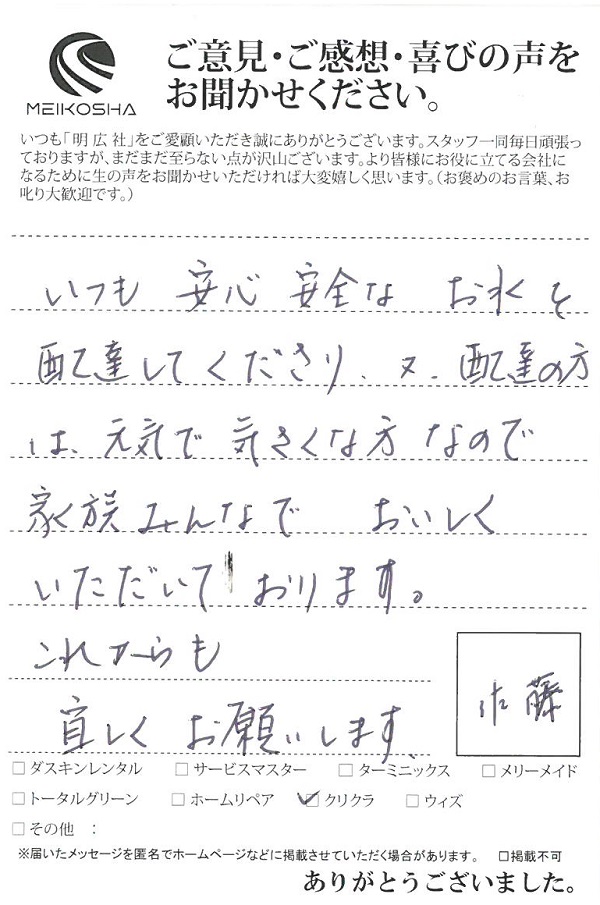 MEIKOSHA
ご意見・ご感想・喜びの声を
お聞かせください。
いつも「明広社」をご愛顧いただき誠にありがとうございます。スタッフ一同毎日頑張っ
ておりますが、まだまだ至らない点が沢山ございます。より皆様にお役に立てる会社に
なるために生の声をお聞かせいただければ大変嬉しく思います。（お褒めのお言葉、お
叱り大歓迎です。）
いつも 安心 安全な お水を
配達してくださり、又、配達の方
は、元気で気さくな方なので
家族みんなで おいしく
いただいております。
これからも
宜しく お願いします
佐藤
□ダスキンレンタル □サービスマスター □ターミニックス □メリーメイド
□トータルグリーン □ホームリペア ☑クリクラ □ウィズ
□その他 ：
※届いたメッセージを匿名でホームページなどに掲載させていただく場合があります。 □掲載不可
ありがとうございました。